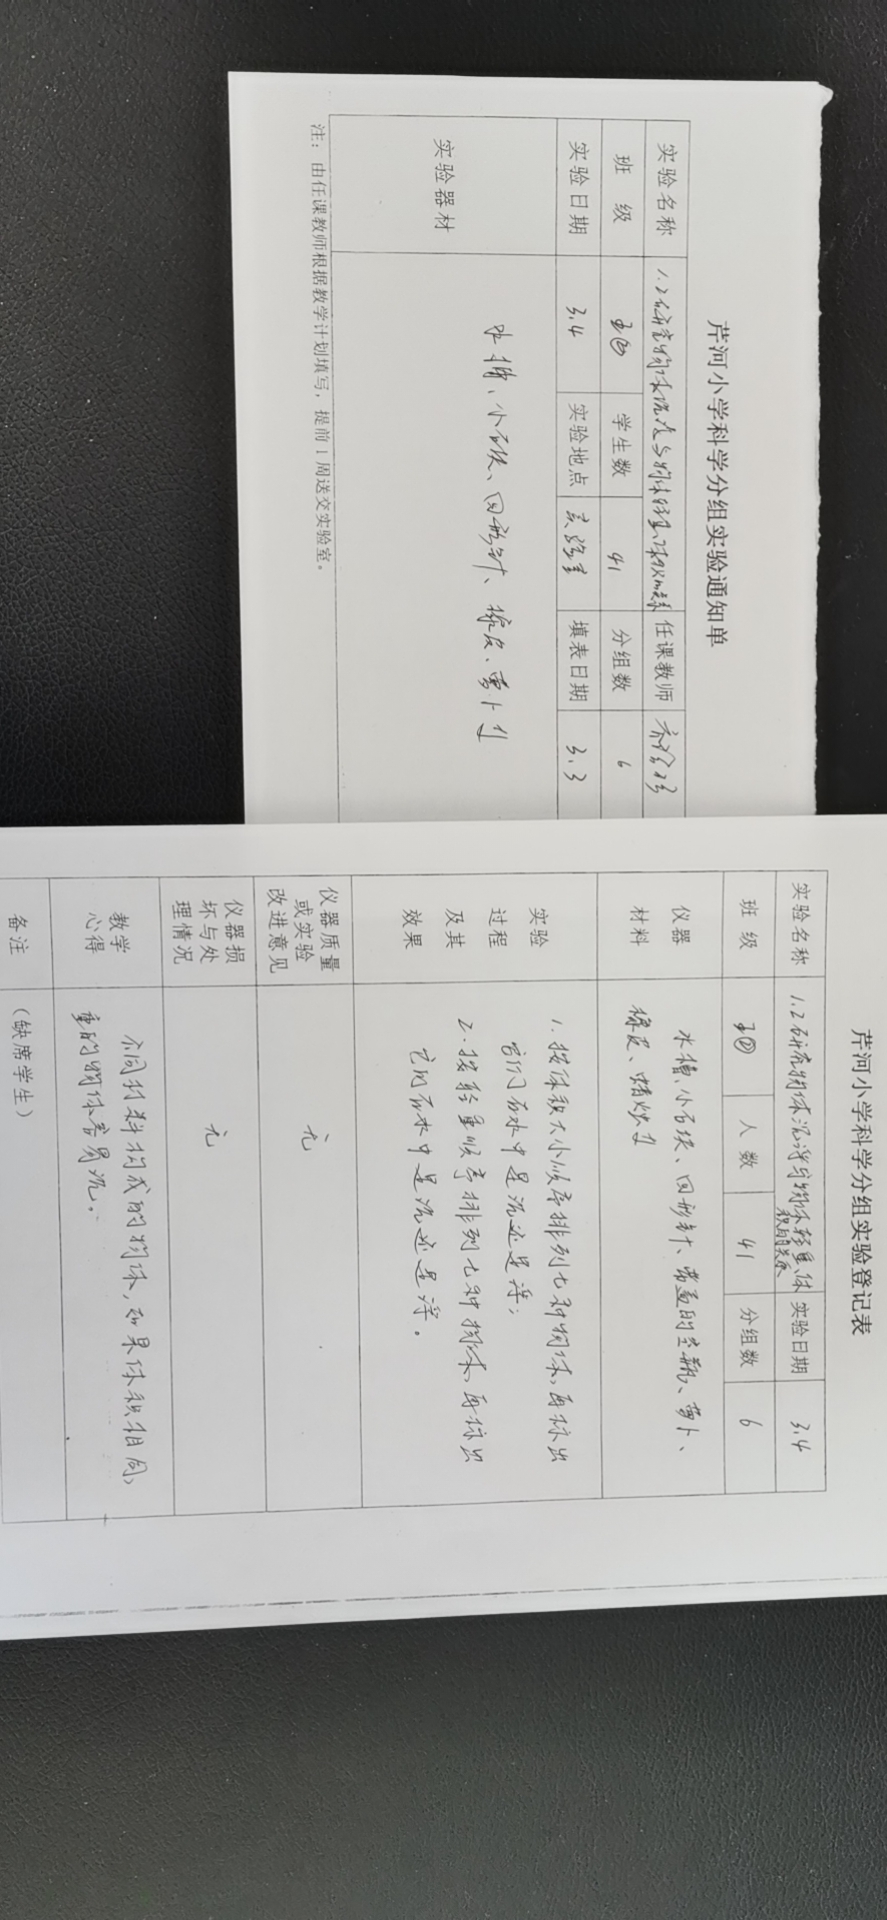 芹河小学科学分组实验通知单
实验名称 1.2研究物体沉浮与物体轻重、体积的关系 任课教师
班 级 五② 学生数 41 分组数 6
实验日期 3.4 实验地点 实验室 填表日期 3.3
实验器材 水槽、小石块、回形针、橡皮、萝卜等
注：由任课教师根据教学计划填写，提前1周送交实验室。
芹河小学科学分组实验登记表
实验名称 1.2研究物体沉浮与物体轻重、体积的关系 实验日期 3.4
班 级 五② 人 数 41 分组数 6
仪器材料 水槽、小石块、回形针、带盖的空瓶、萝卜、
橡皮、蜡烛等
实验过程及其效果 1.按体积大小顺序排列七种物体，再标出
它们在水中是沉还是浮；
2.按轻重顺序排列七种物体，再标出
它们在水中是沉还是浮。
仪器质量或实验改进意见 无
仪器损坏与处理情况 无
教学心得 不同材料构成的物体，如果体积相同，
重的物体容易沉。
备注 （缺席学生）